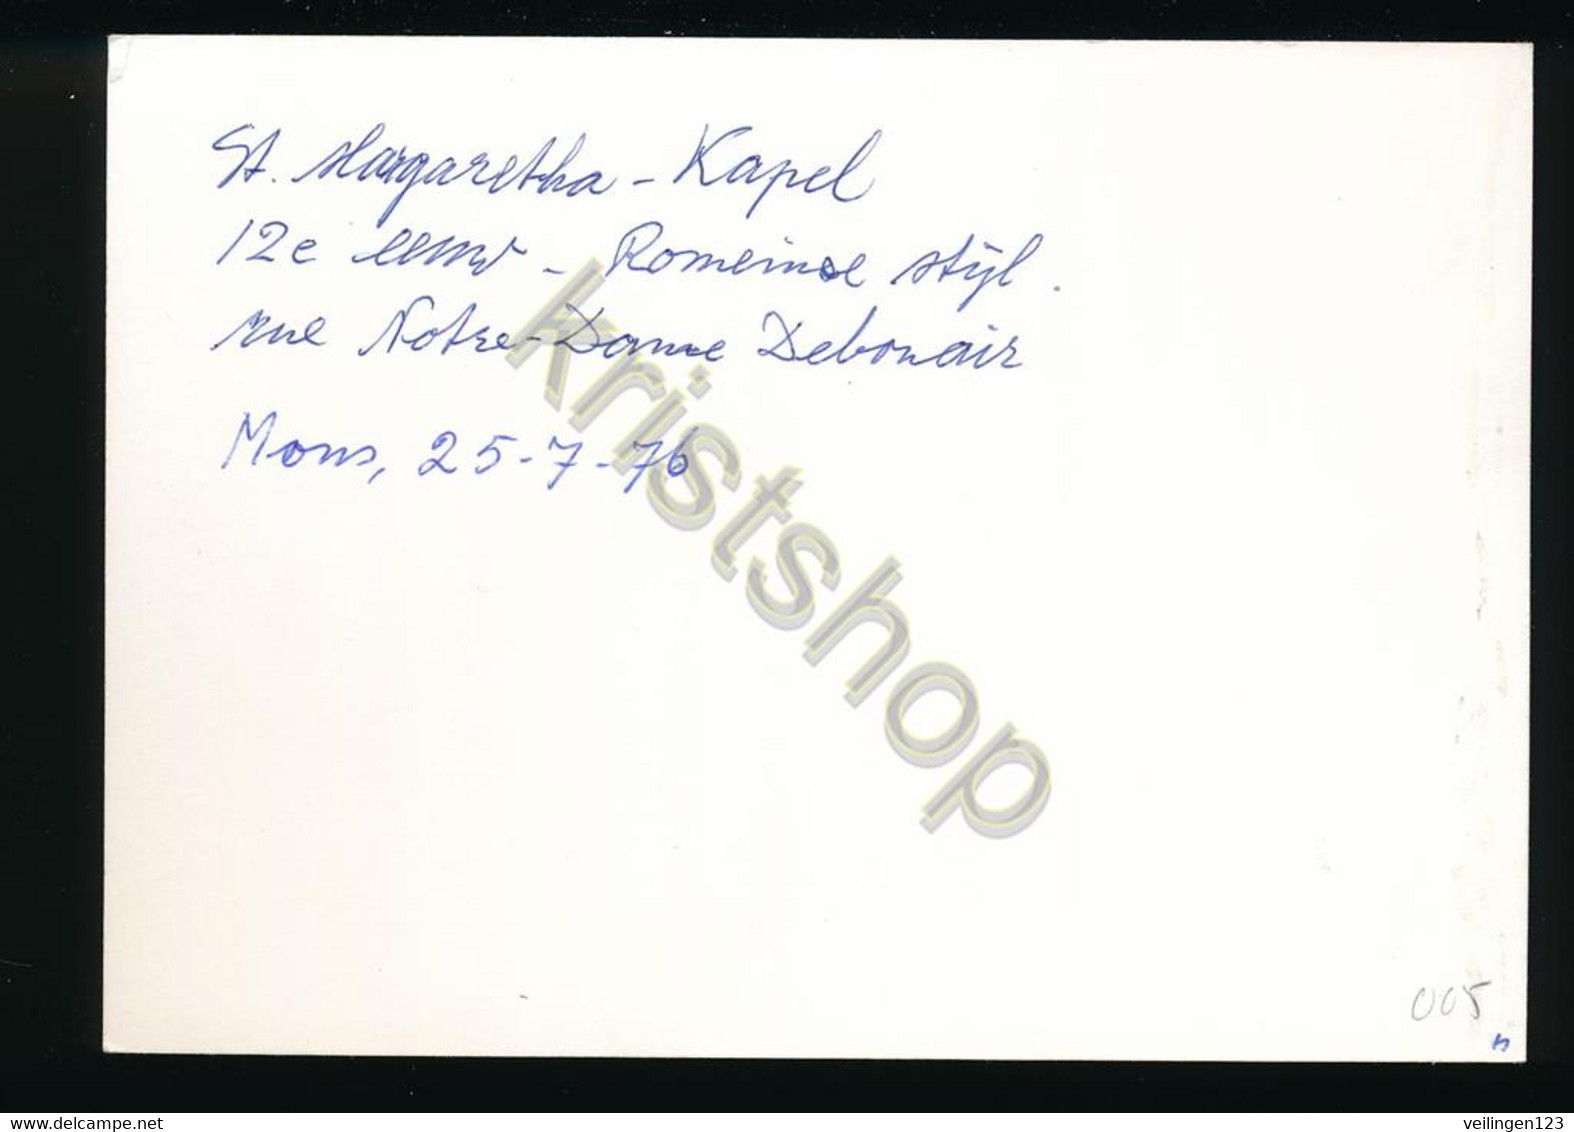 St. Margaretha - Kapel
12e eeuw - Romeinse stijl.
rue Notre-Dame Debonair
Mons, 25-7-76
kristshop
005
www.delcampe.net
veilingen123